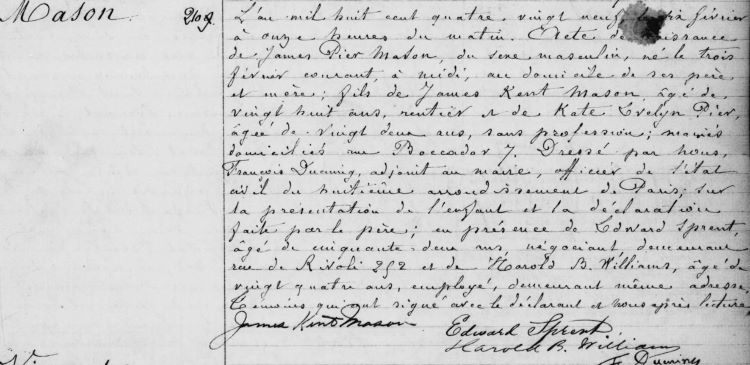 Mason 209. L'an mil huit cent quatre vingt neuf, le dix février
à onze heures du matin. Acte de naissance
de James Pier Mason, du sexe masculin, né le trois
février courant, à midi, au domicile de ses père
et mère; fils de James Kent Mason, âgé de
vingt huit ans, rentier & de Kate Evelyn Pier,
âgée de vingt deux ans, sans profession; mariés
domiciliés rue Boccador 7. Dressé par nous,
François Duming, adjoint au maire, officier de l'état
civil du huitième arrondissement de Paris; sur
la présentation de l'enfant et la déclaration
faite par le père; en présence de Edward Sprent,
âgé de cinquante deux ans, négociant, demeurant
rue de Rivoli 252 et de Harold B. Williams, âgé de
vingt quatre ans, employé, demeurant même adresse,
témoins qui ont signé avec le déclarant et nous après lecture.
James Kent Mason Edward Sprent.
Harold B. Williams